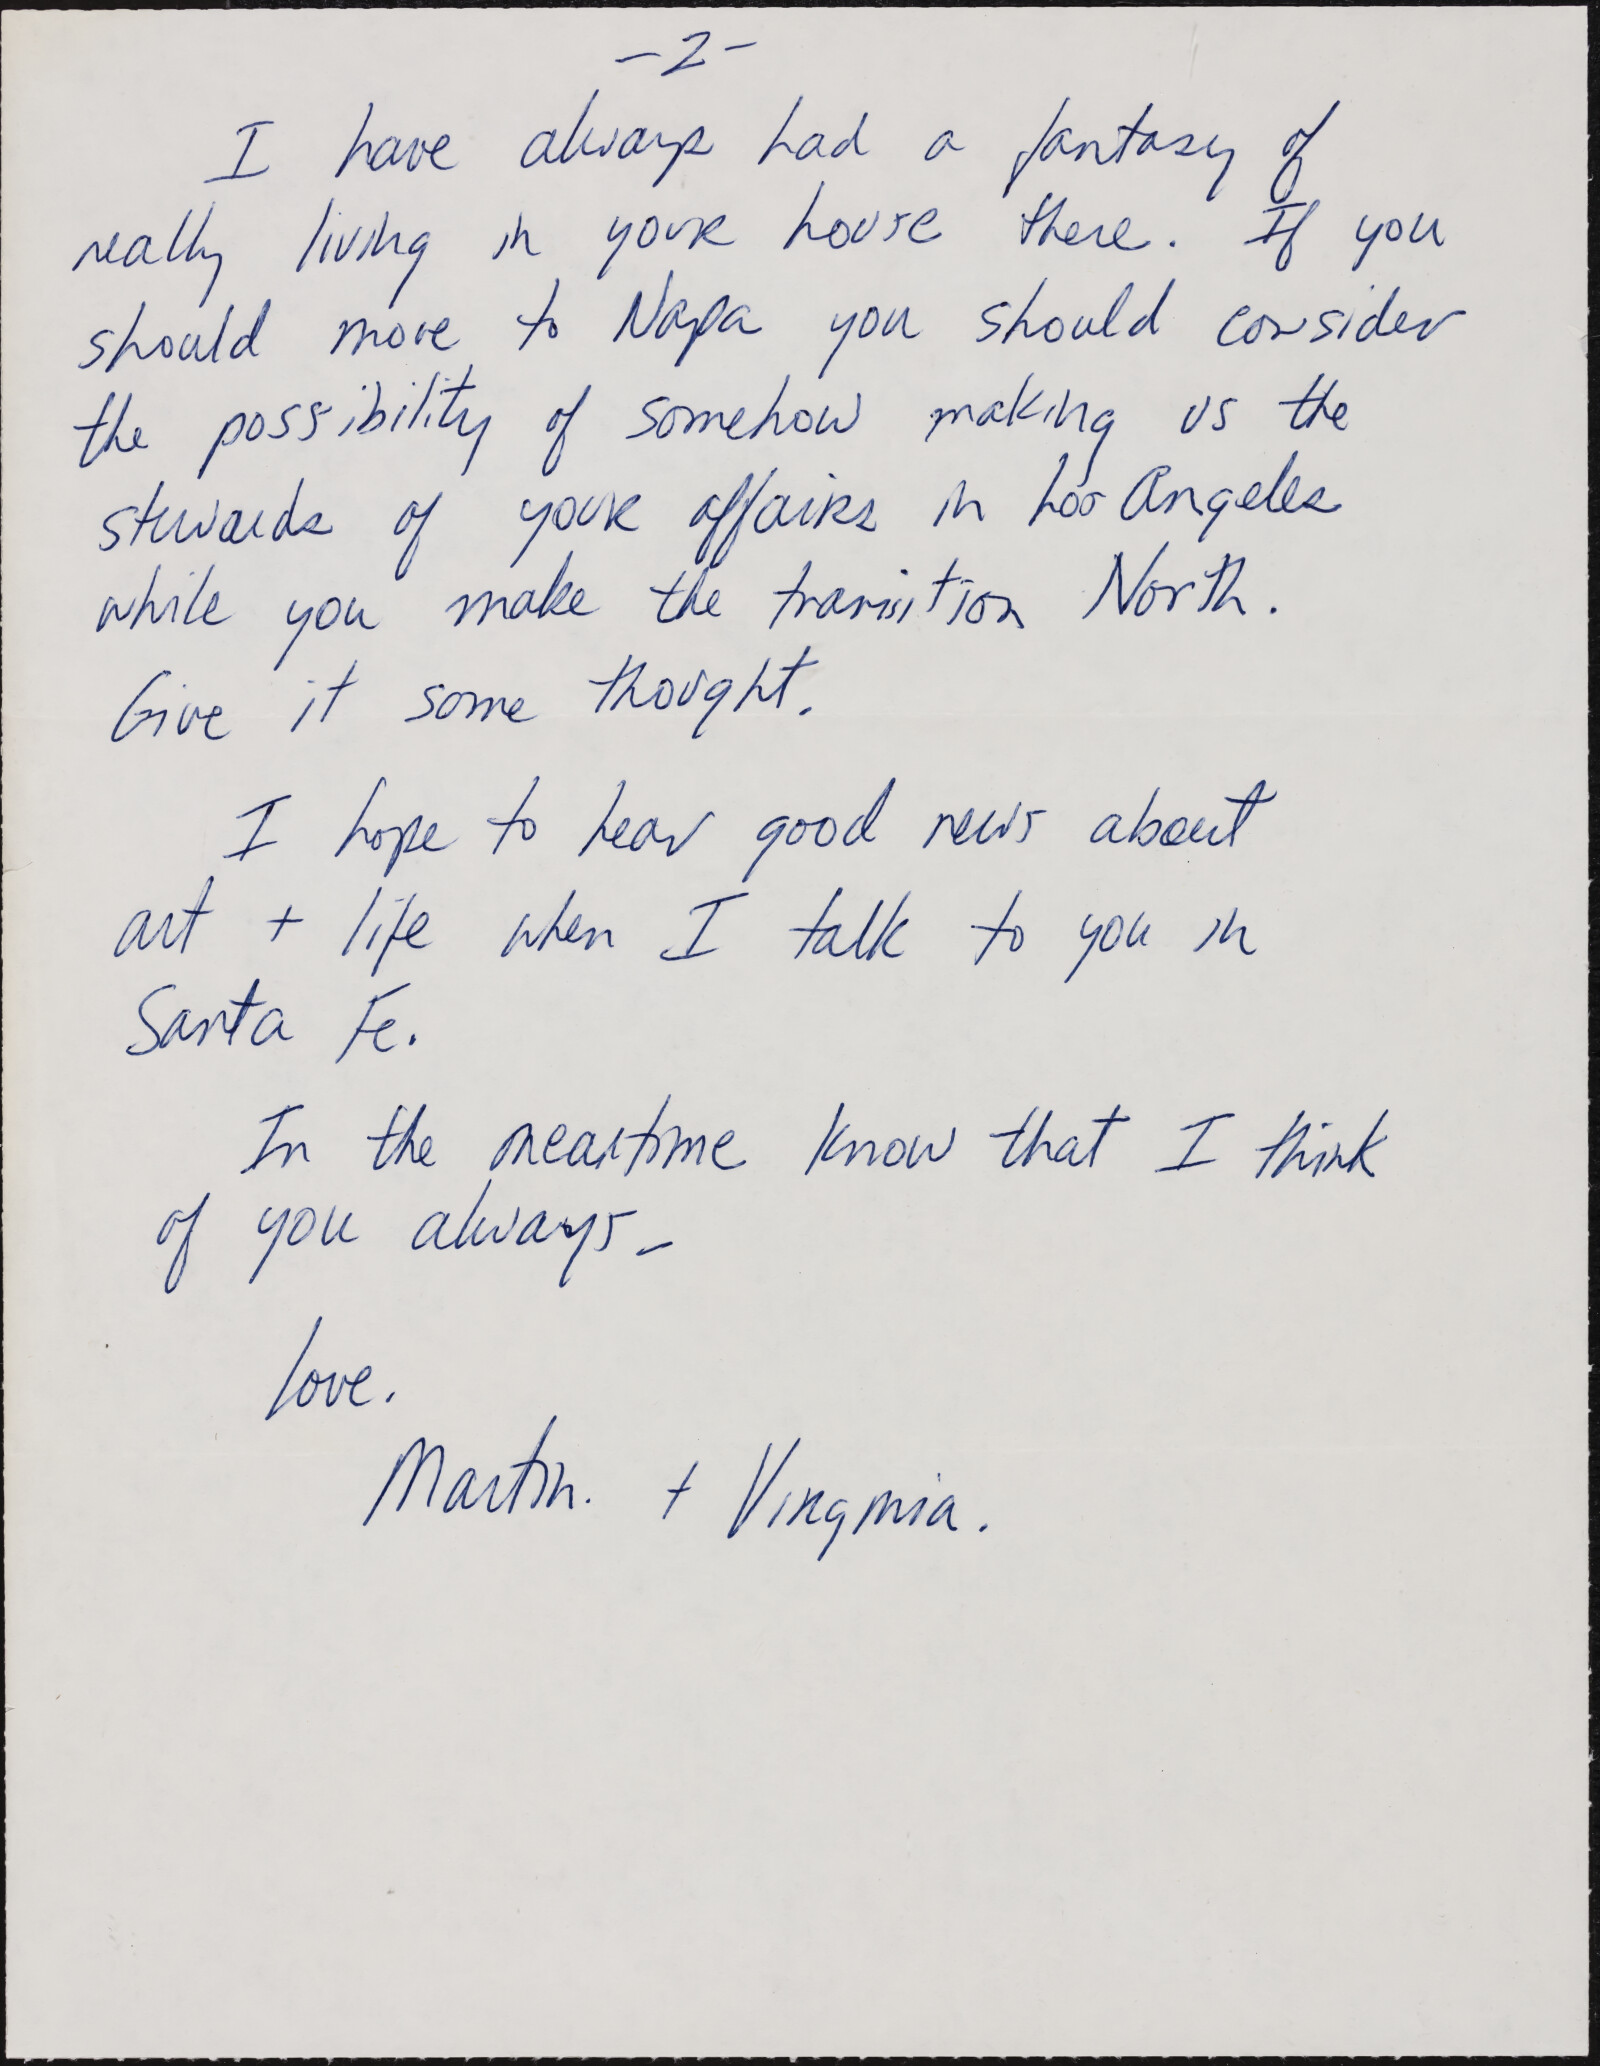 -2-
I have always had a fantasy of
really living in your house there. If you
should move to Napa you should consider
the possibility of somehow making us the
stewards of your affairs in Los Angeles
while you make the transition North.
Give it some thought.
I hope to hear good news about
art + life when I talk to you in
Santa Fe.
In the meantime know that I think
of you always-
Love.
Martin. + Virginia.